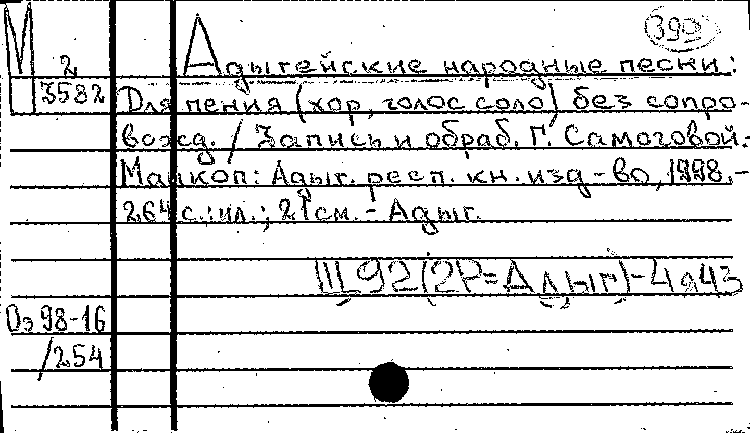 М 2
3582
399
Адыгейские народные песни:
Для пения (хор, голос соло) без сопро-
вожд. / Запись и обраб. Г. Самоговой.-
Майкоп: Адыг. респ. кн. изд-во, 1998.-
264 с.: ил.; 21 см. - Адыг.
Щ92(2Р=Адыг)-4я43
Оз 98-16
/254